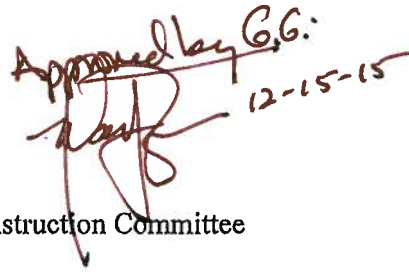 Approved by G.G.
12-15-15
nstruction Committee